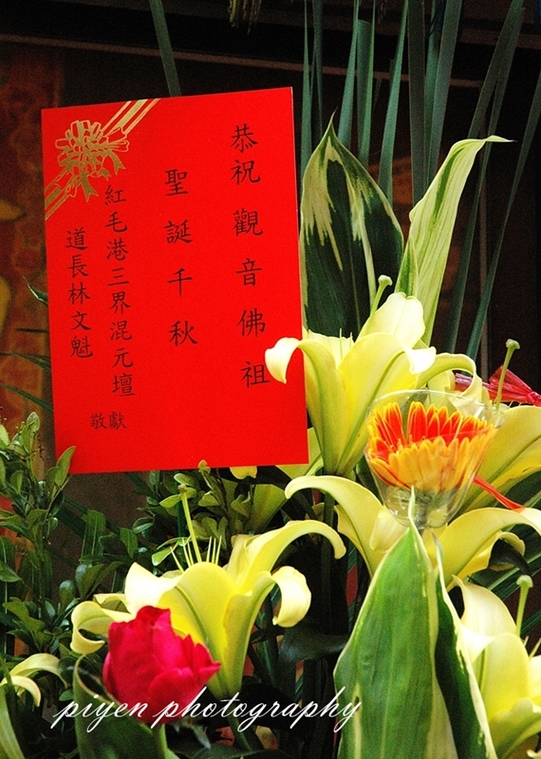 恭祝觀音佛祖
聖誕千秋
紅毛港三界混元壇
道長林文魁
敬獻
piyen photography